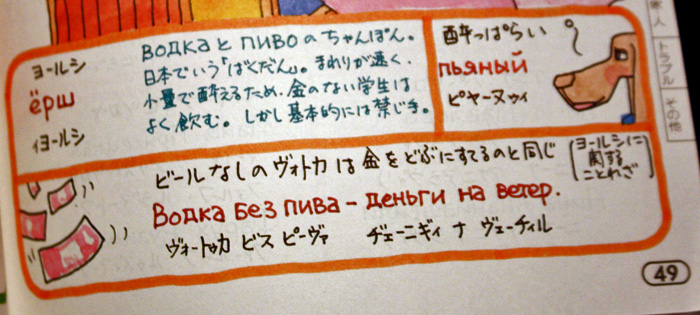 ヨールシ
ёрш
イヨールシ
ВОДКАとПИВОのちゃんぽん。
日本でいう「ばくだん」。まわりが速く、
小量で酔えるため、金のない学生は
よく飲む。しかし基本的には禁じ手。
酔っぱらい
пьяный
ピヤーヌゥィ
ビールなしのヴォトカは金をどぶにすてるのと同じ
(ヨールシに
関する
ことわざ)
Водка без пива – деньги на ветер.
ヴォートゥカ ビス ピーヴァ ヂェーニギィ ナ ヴェーチィル
人
トラブル
その他
49